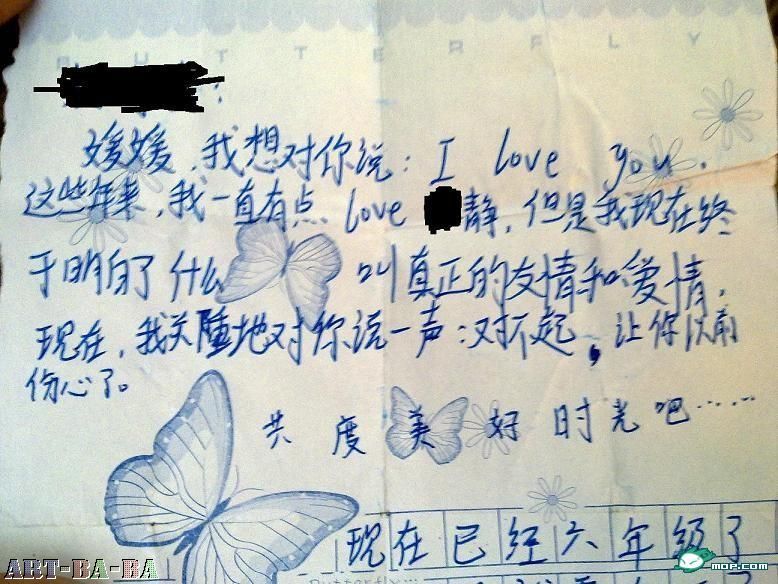 BUTTERFLY
:
媛媛，我想对你说：I love you.
这些年来，我一直有点 love 静，但是我现在终
于明白了什么 叫真正的友情和爱情，
现在，我对你说一声：对不起，让你以前
伤心了。
共度美好时光吧……
现在已经六年级了
Butterfly...
ART-BA-BA
mop.com